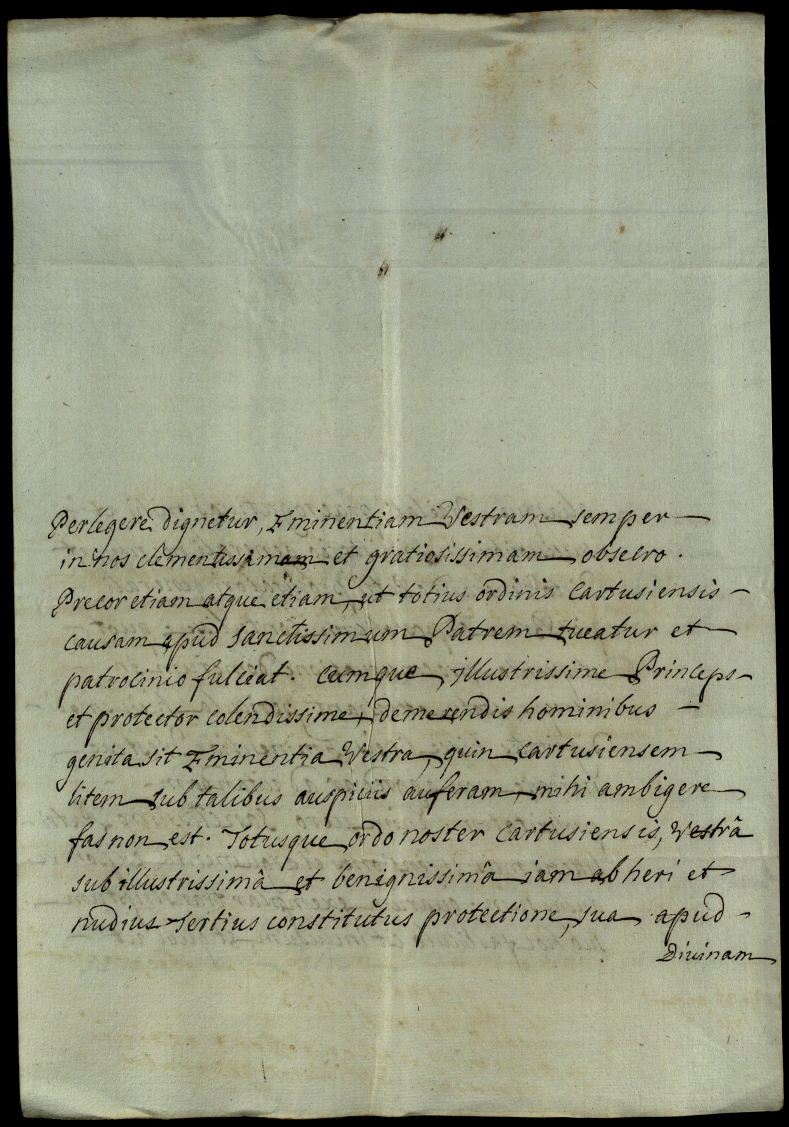 Perlegere dignetur, Eminentiam Vestram semper
in nos clementissimam et gratiosissimam obsecro.
Precor etiam atque etiam, ut totius ordinis Cartusiensis
causam apud Sanctissimum Patrem tueatur et
patrocinio fulciat. Cumque, illustrissime Princeps
et protector colendissime, demerendis hominibus
genita sit Eminentia Vestra, quin Cartusiensem
litem sub talibus auspiciis auferam, mihi ambigere
fas non est. Totusque ordo noster Cartusiensis, Vestrâ
sub illustrissimâ et benignissimâ iam ab heri et
nudius tertius constitutus protectione, sua apud
Divinam